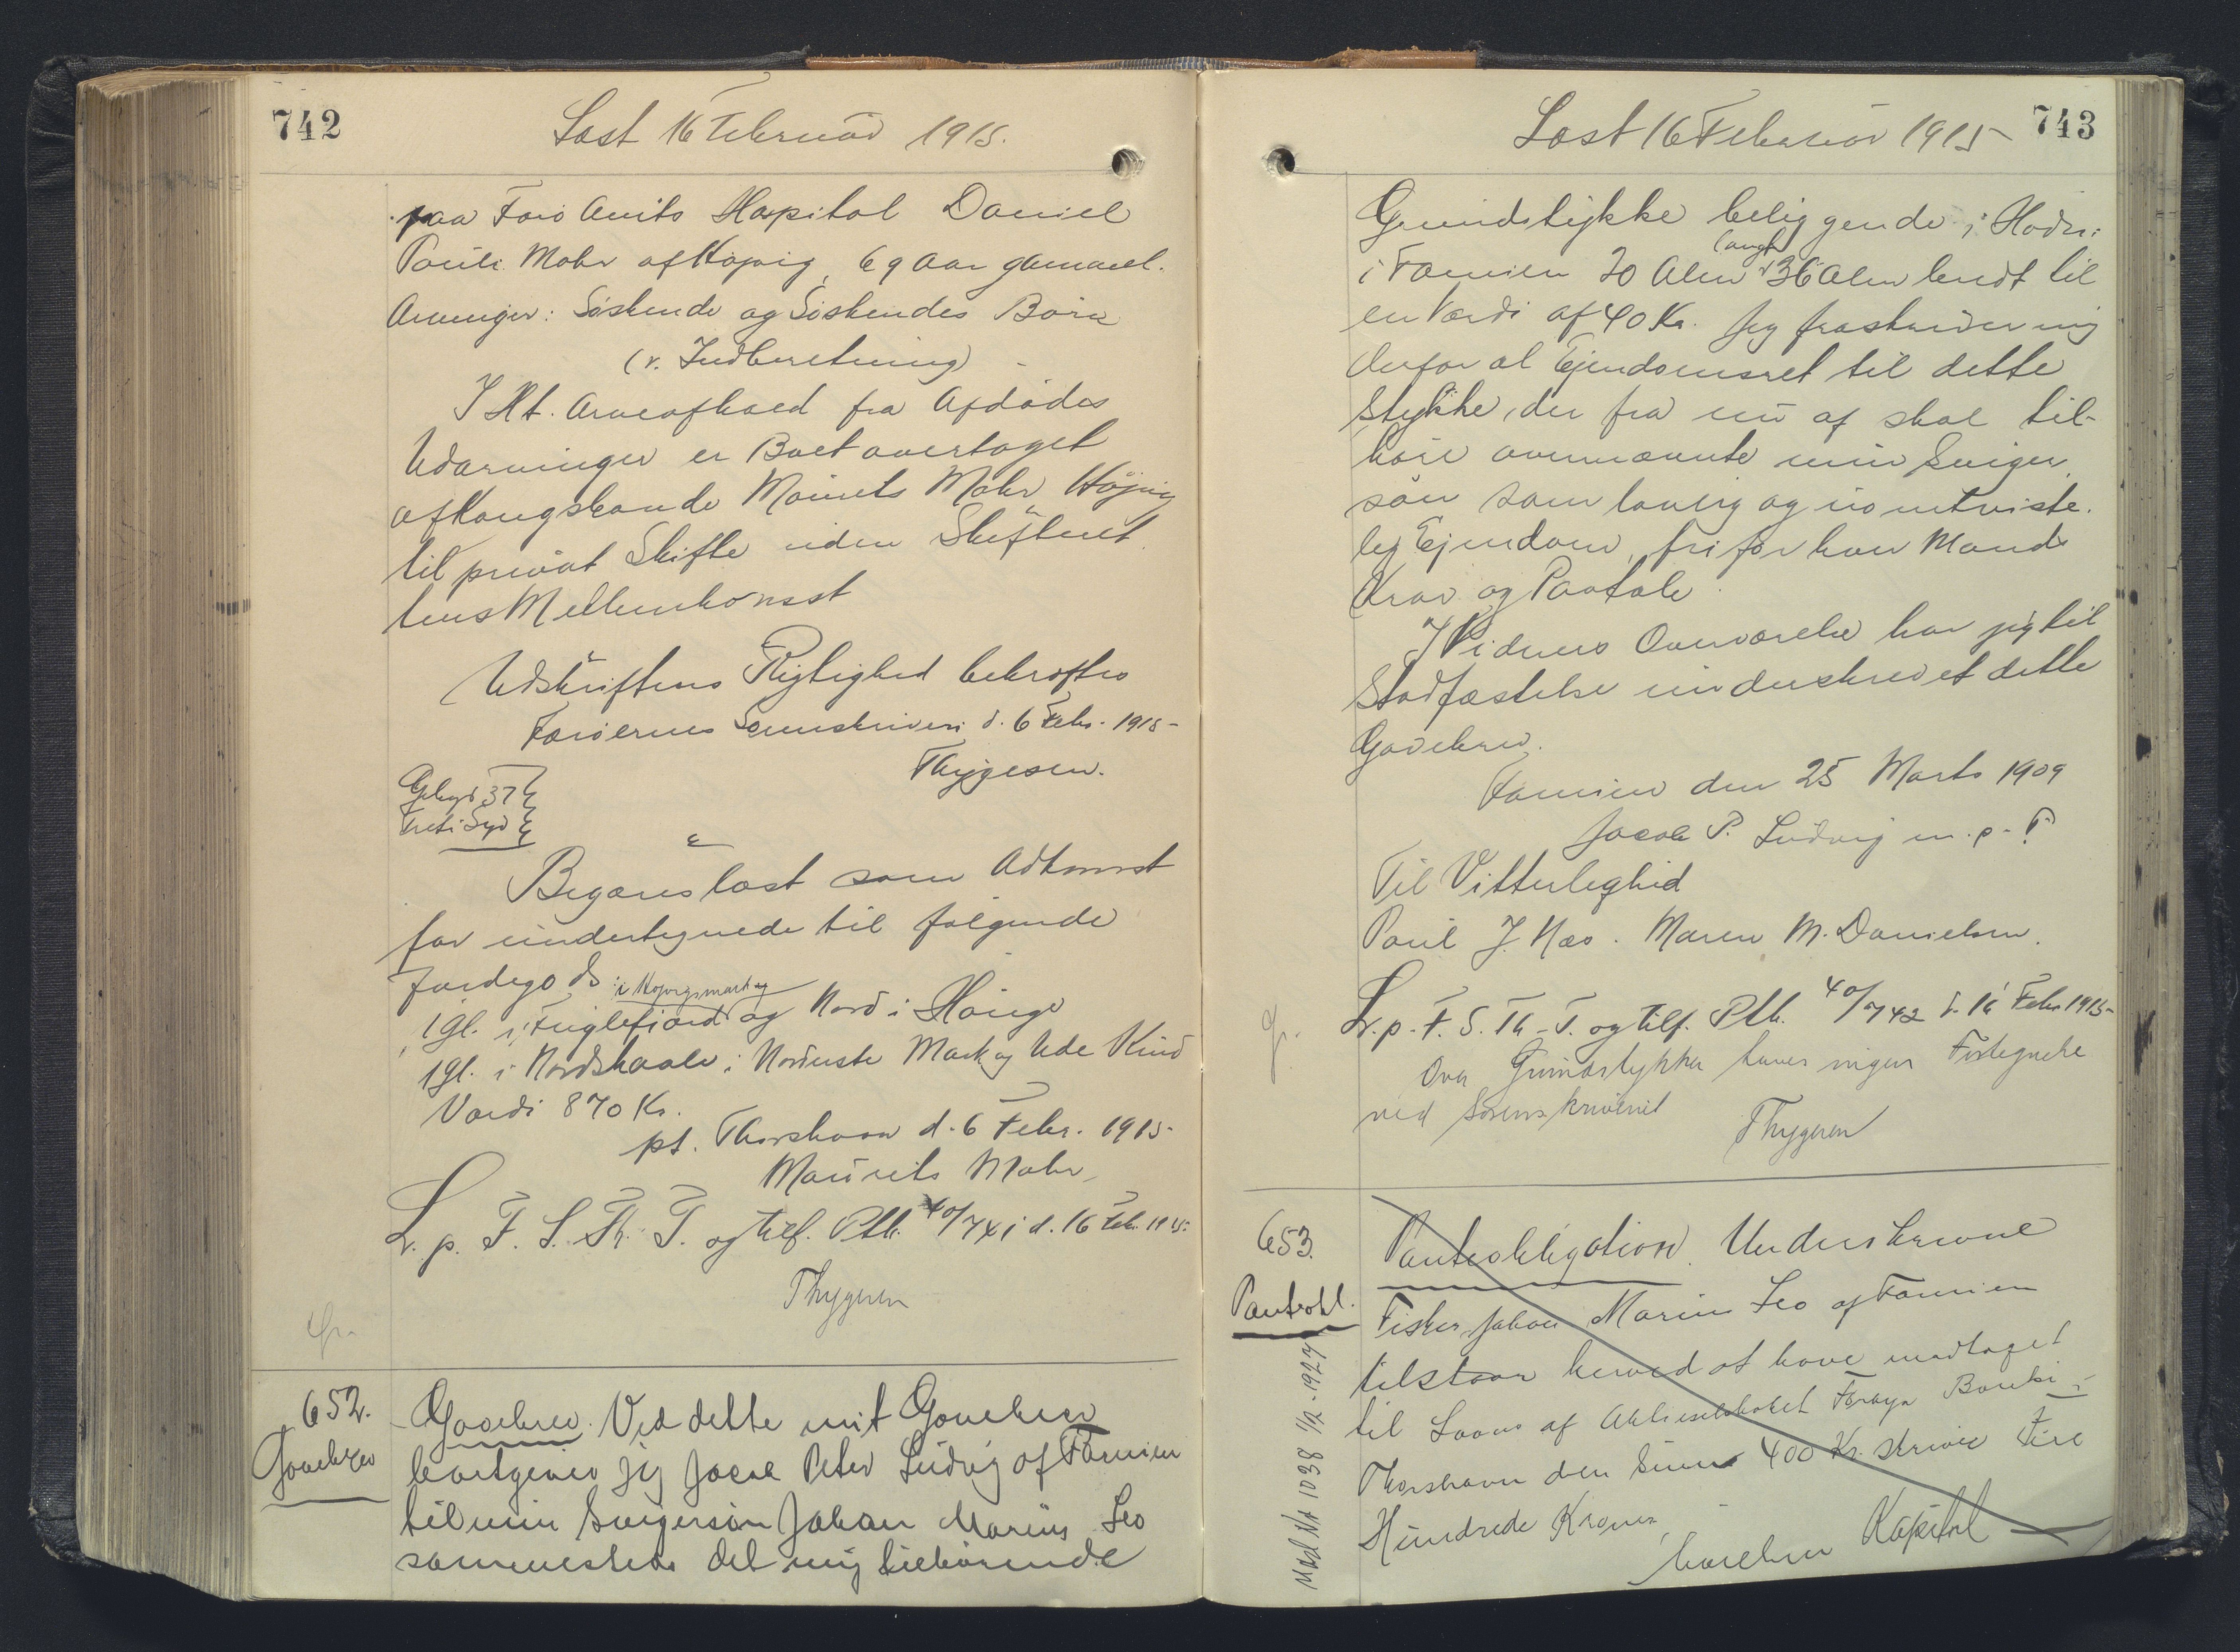 742
Læst 16 Februar 1915.
paa Færø Amts Hospital Daniel
Pauli Mohr af Højvig, 69 Aar gammel.
Arvinger: Søskende og Søskendes Børn
(v. Indberetning)
I Hht. Arveafkald fra Afdødes
Udarvinger er Boet overtaget
af Kongsbonde Maurits Mohr Højvig
til privat Skifte uden Skifteret
tens Mellemkomst
Udskriftens Rigtighed bekræftes
Færøernes Sorenskriveri d. 6 Febr. 1915
Thygesen.
Gebyr 37
Begæres læst som Adkomst
for undertegnede til følgende
Jordegods
i Højvigsmark og
1 gl. i Fuglefjord og Nord i Hauge
1 gl. i Nordskaale i Norderste Mark og Ude Kind
Værdi 870 Kr.
pt. Thorshavn d. 6 Febr. 1915
Maurits Mohr
L. p. F. S. Th. T. og tilf. Ptb. 40/741 d. 16 Feb. 1915.
Thygesen
652.
Gavebrev
Gavebrev. Ved dette mit Gavebrev
bortgiver jeg Jacob Peter Ludvig af Famien
til min Svigersøn Johan Marius Leo
sammesteds det mig tilhørende
743
Læst 16 Februar 1915
Grundstykke beliggende i
langt
i Famien 20 Alen 36 Alen bredt til
en Værdi af 40 Kr. Jeg fraskriver mig
derfor al Ejendomsret til dette
Stykke, der fra nu af skal til-
høre ovennævnte min Sviger
søn som lovlig og uomtviste.
lig Ejendom, fri for hver Mands
Krav og Paatale.
I Vidners Overværelse har jeg til
Stadfæstelse underskrevet dette
Gavebrev.
Famien den 25 Marts 1909
Jacob P. Ludvig m. p. P.
Til Vitterlighed
Poul J. Næs. Maren M. Danielsen.
L. p. F. S. Th. T. og tilf. Ptb. 40/742 d. 16 Febr 1915
Over Grundstykker haves ingen Fortegnelse
ved Sorenskriveriet
Thygesen
653.
Pantobl.
Pantobligation. Underskrevne
Fisker Johan Marius Leo af Famien
tilstaar herved at have modtaget
til Laans af Aktieselskabet Føroya Banki i
Thorshavn den Sum 400 Kr. skriver Fire
Hundrede Kroner,
hvilken Kapital
1038 1/2 - 1927